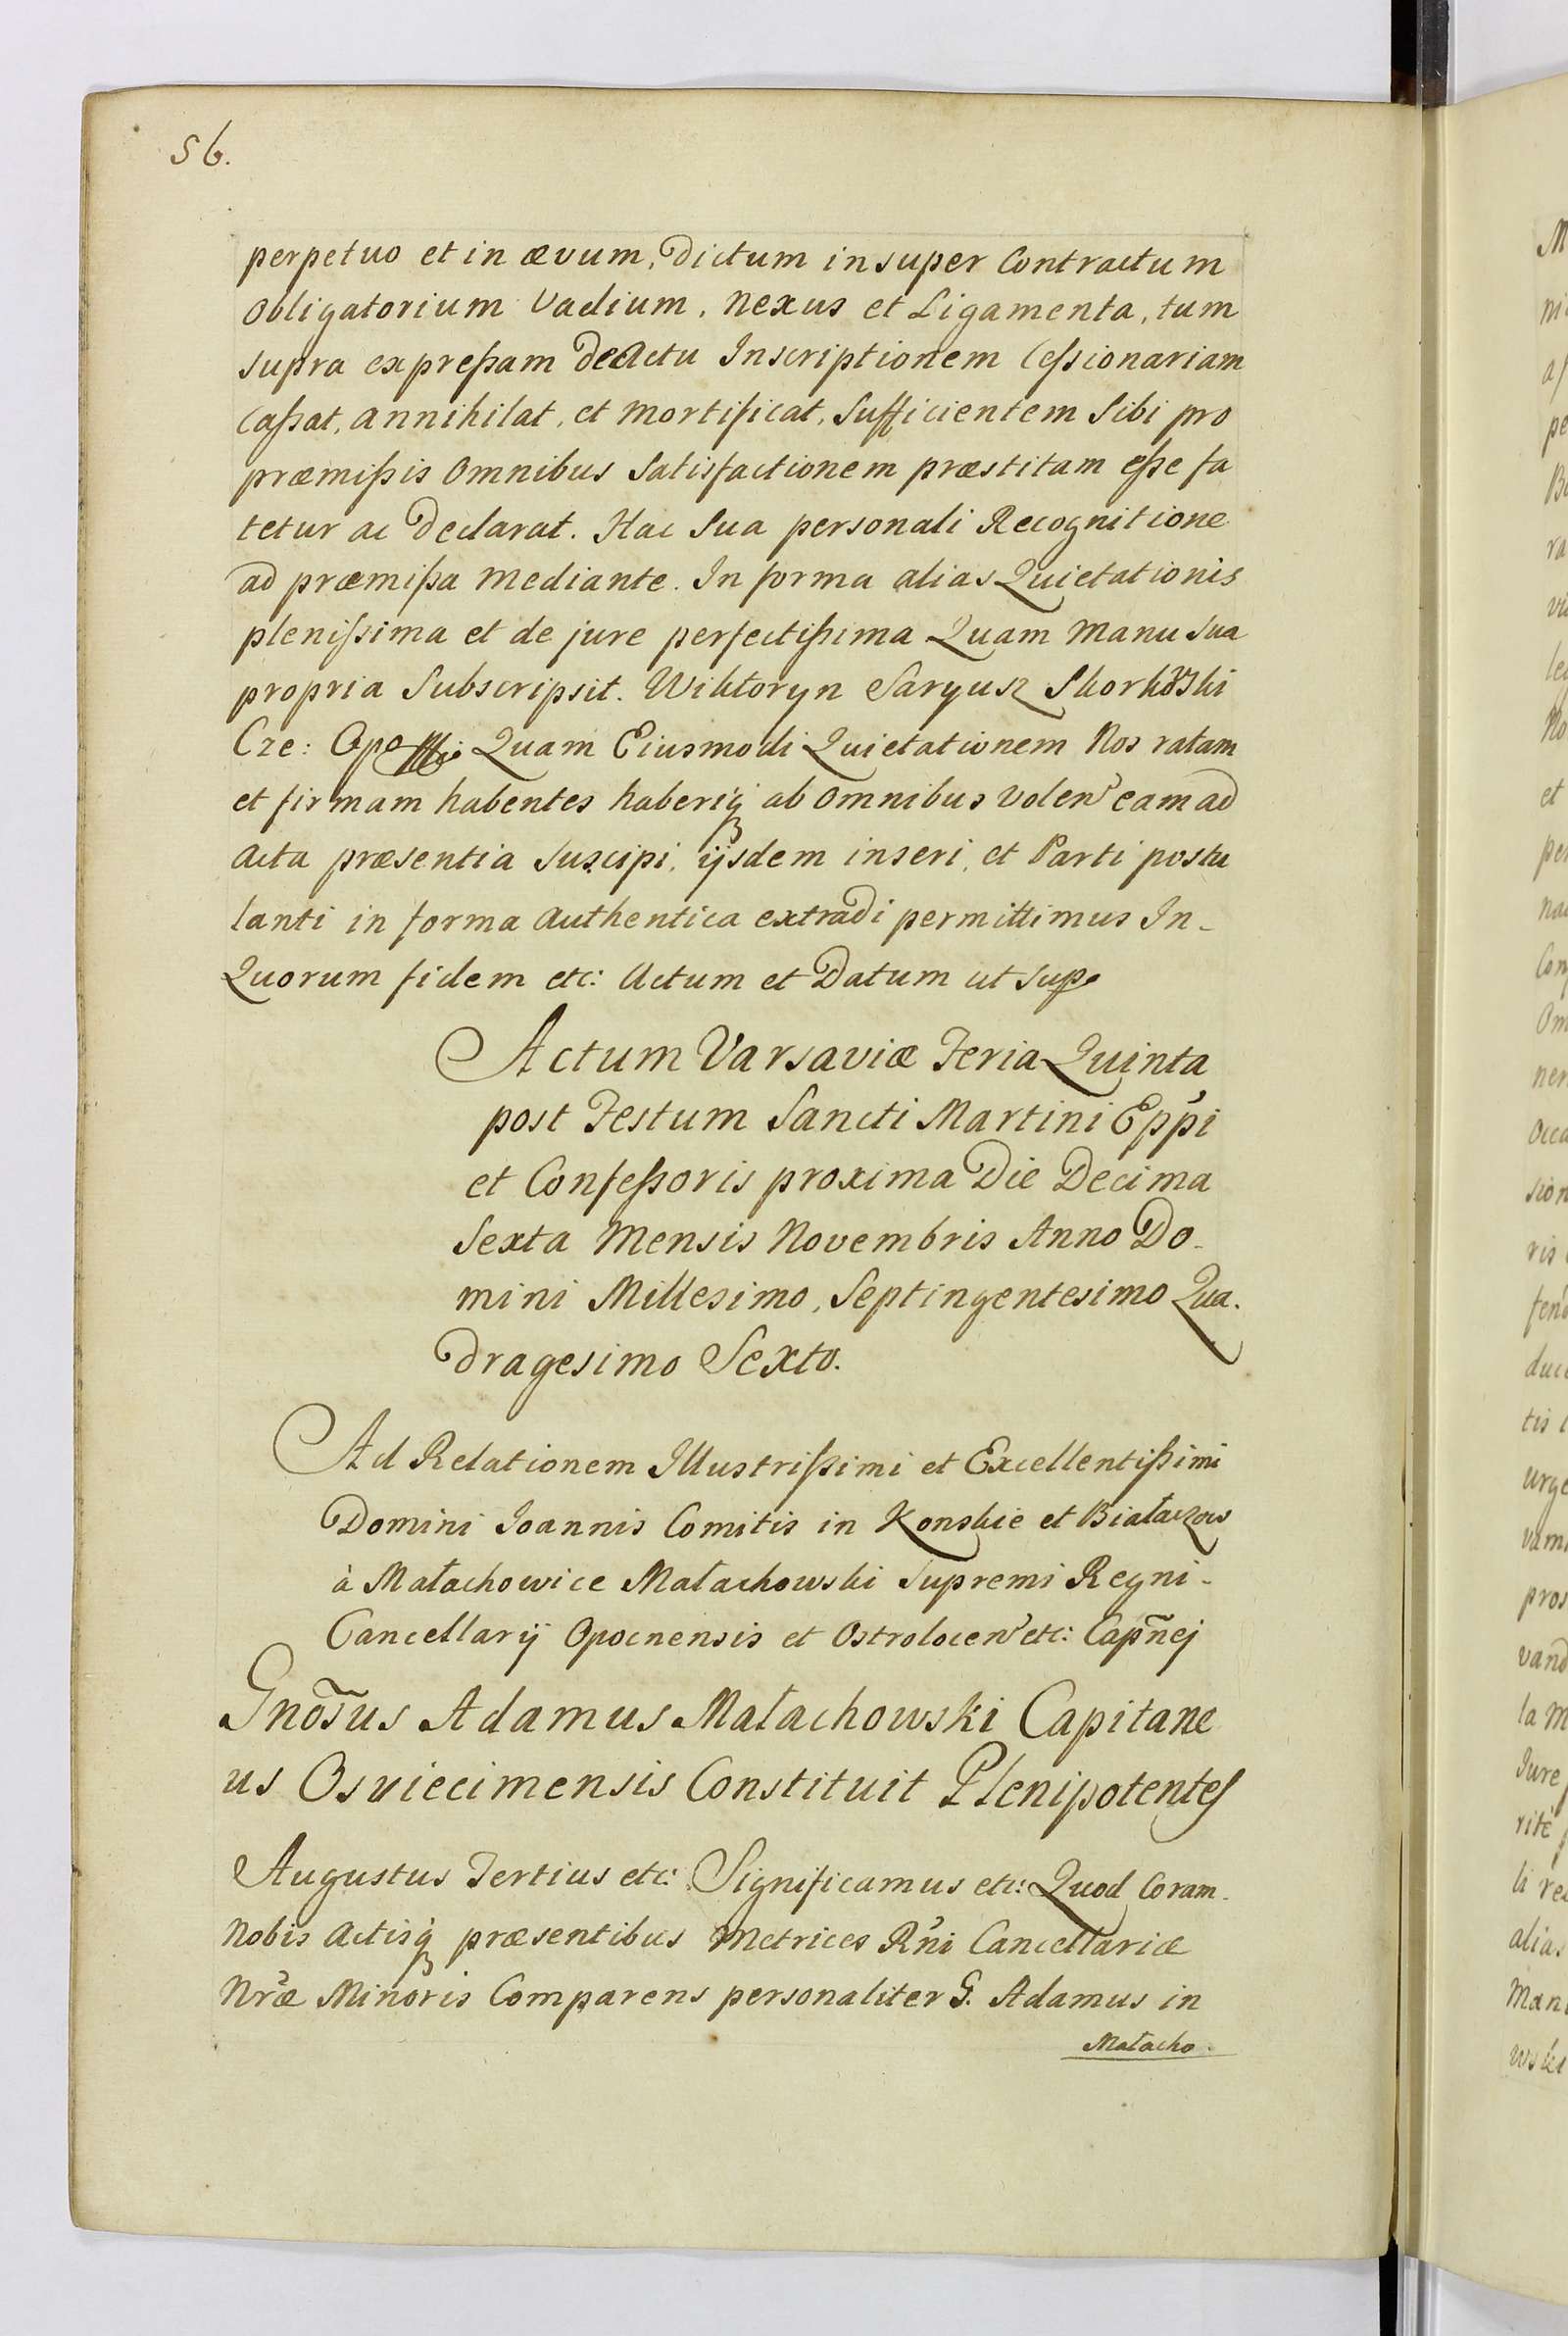 56.
perpetuo et in ævum, Dictum insuper Contractum
Obligatorium Vadium, Nexus et Ligamenta, tum
supra expreßam de Actu Inscriptionem Ceßionariam
Caßat, annihilat, et mortificat, Sufficientem Sibi pro
præmißis Omnibus Satisfactionem præstitam eße fa
tetur ac Declarat. Hac Sua personali Recognitione
ad præmißa mediante. In forma alias Quietationis
plenißima et de jure perfectißima Quam manu sua
propria Subscripsit. Wiktoryn Saryusz Skorkoski
Cze: Quam Eiusmodi Quietationem Nos ratam
et firmam habentes haberiq̃ ab Omnibus Volen̾ eam ad
Acta præsentia suscipi, ijsdem inseri, et Parti postu
lanti in forma authentica extradi permittimus In-
Quorum fidem etc: Actum et Datum ut Sup
Actum Varsaviæ Feria Quinta
post Festum Sancti Martini Epp̾i
et Confeßoris proxima Die Decima
Sexta Mensis Novembris Anno Do-
mini Millesimo, Septingentesimo Qua.
dragesimo Sexto.
Ad Relationem Illustrißimi et Excellentißimi
Domini Ioannis Comitis in Konskie et Białaczow
à Małachowice Małachowski Supremi Regni-
Cancellarij Opocnensis et Ostrolocen̾ etc: Cap̃nej
Gnõsus Adamus Małachowski Capitane
us Osviecimensis Constituit Plenipotentes
Augustus Tertius etc: Significamus etc: Quod Coram-
Nobis Actisq̃ præsentibus Metrices R̾ni Cancellariæ
Nr̾æ Minoris Comparens personaliter G. Adamus in
Małacho.